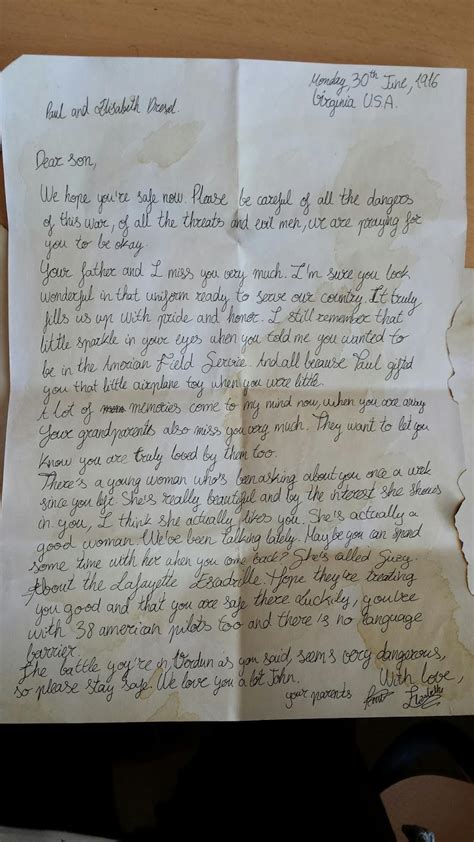 Monday, 30th June, 1916
Virginia U.S.A.
Paul and Elisabeth
Dear son,
We hope you're safe now. Please be careful of all the dangers
of this war, of all the threats and evil men, we are praying for
you to be okay.
Your father and I miss you very much. I'm sure you look
wonderful in that uniform ready to serve our country. It truly
fills us up with pride and honor. I still remember that
little sparkle in your eyes when you told me you wanted to
be in the American Field Service. And all because Paul gifted
you that little airplane toy when you were little.
A lot of memories come to my mind now, when you are away
Your grandparents also miss you very much. They want to let you
know you are truly loved by them too.
There's a young woman who's been asking about you once a week
since you left. She's really beautiful and by the interest she shows
in you, I think she actually likes you. She's actually a
good woman. We've been talking lately. Maybe you can spend
some time with her when you come back? She's called Suzy.
About the Lafayette Escadrille. Hope they're treating
you good and that you are safe there. Luckily, you're
with 38 american pilots too and there is no language
barrier.
The battle you're in, Verdun as you said, seems very dangerous,
so please stay safe. We love you a lot John. With love,
your parents